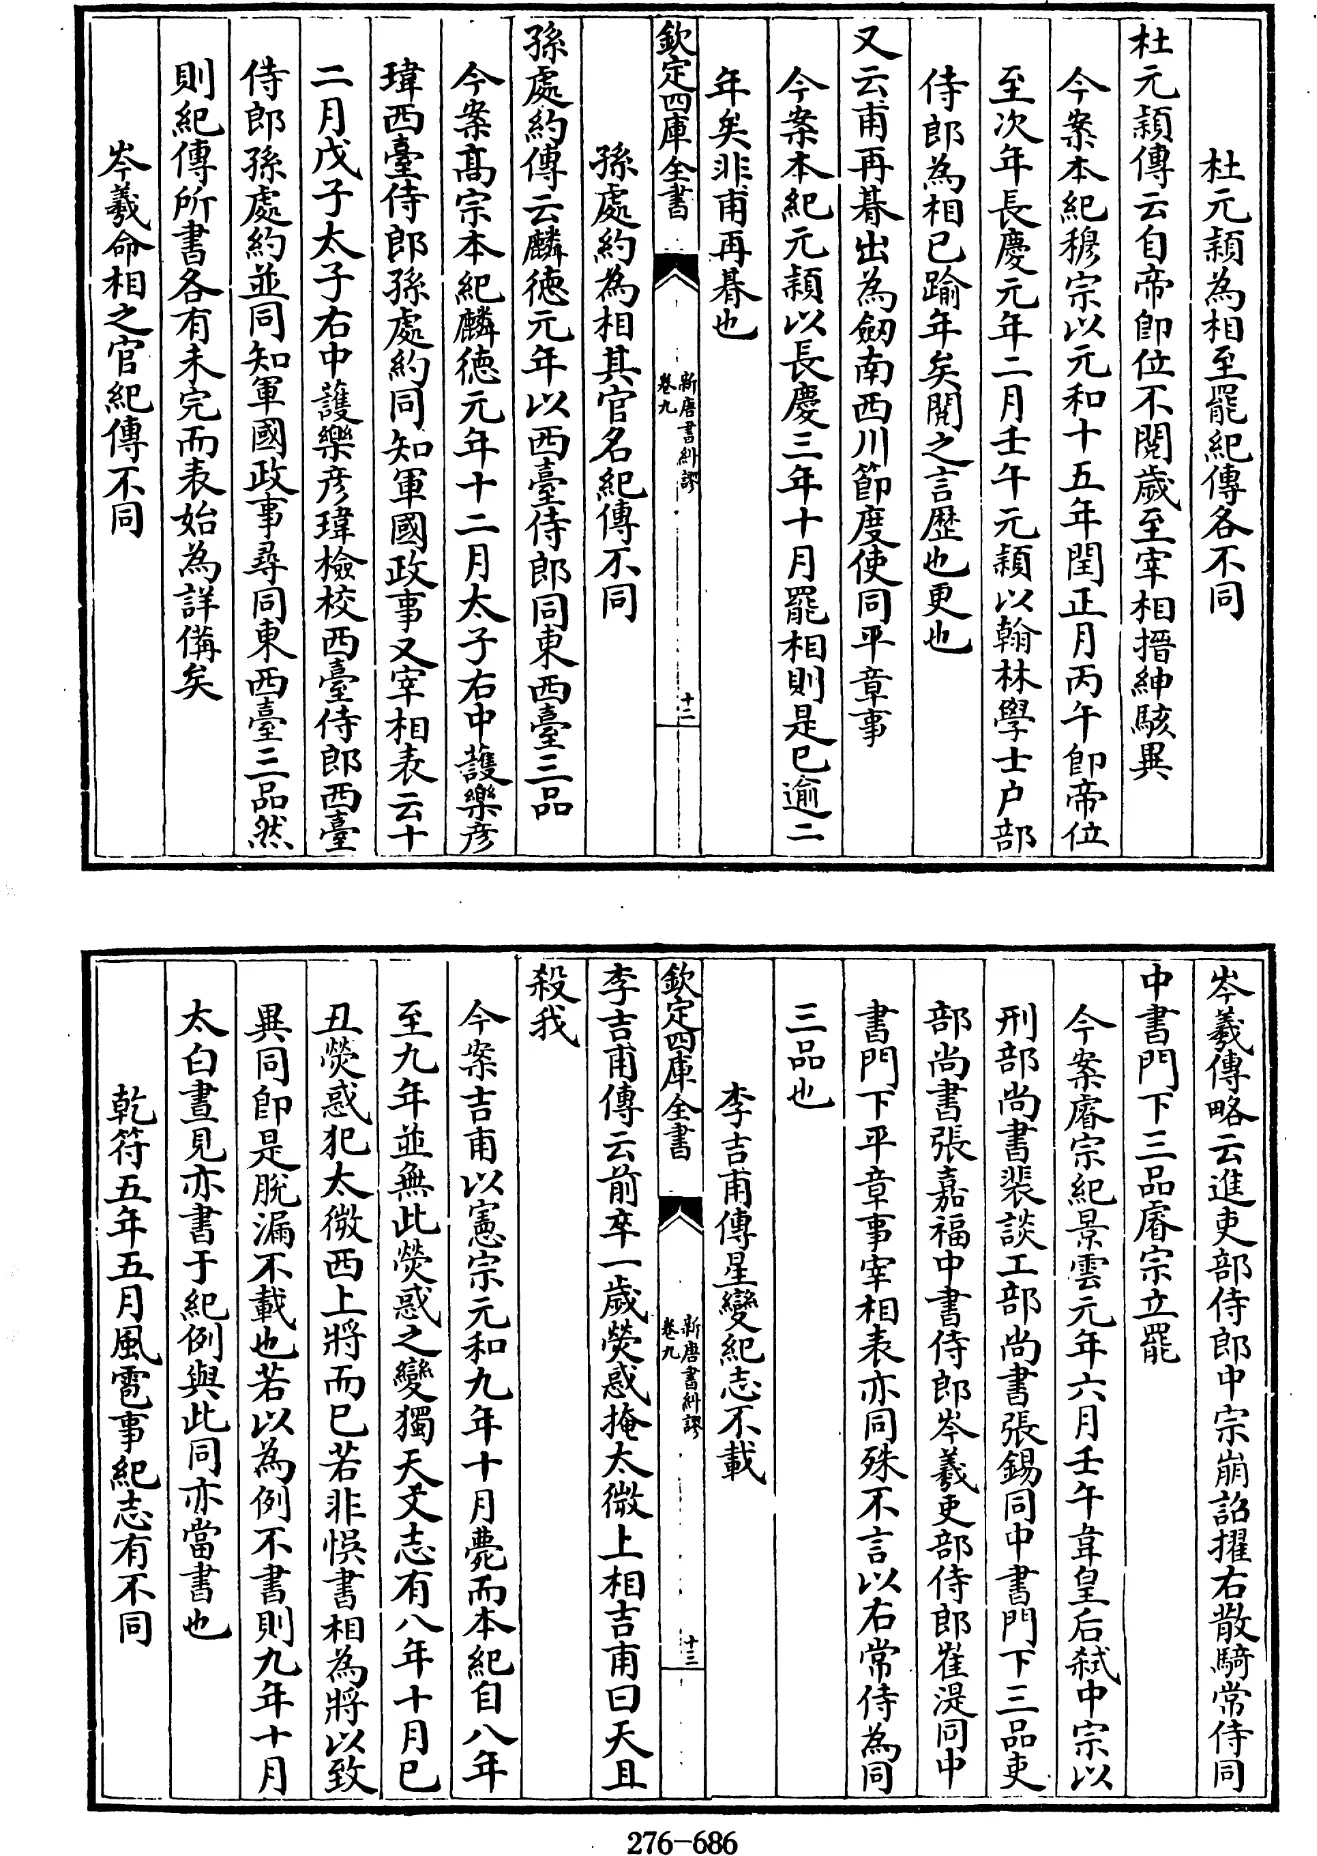 杜元穎為相至罷紀傳各不同
杜元穎傳云自帝即位不閱歲至宰相搢紳駭異
今案本紀穆宗以元和十五年閏正月丙午即帝位
至次年長慶元年二月壬午元穎以翰林學士户部
侍郎為相已踰年矣閱之言歴也更也
又云甫再朞出為劒南西川節度使同平章事
今案本紀元穎以長慶三年十月罷相則是已逾二
年矣非甫再朞也
欽定四庫全書
新唐書糾謬
卷九
十二
孫處約為相其官名紀傳不同
孫處約傳云麟徳元年以西臺侍郎同東西臺三品
今案髙宗本紀麟徳元年十二月太子右中䕶樂彦
瑋西臺侍郎孫處約同知軍國政事又宰相表云十
二月戊子太子右中䕶樂彦瑋檢校西臺侍郎西臺
侍郎孫處約並同知軍國政事尋同東西臺三品然
則紀傳所書各有未完而表始為詳備矣
岑羲命相之官紀傳不同
岑羲傳略云進吏部侍郎中宗崩詔擢右散騎常侍同
中書門下三品睿宗立罷
今案睿宗紀景雲元年六月壬午韋皇后弑中宗以
刑部尚書裴談工部尚書張錫同中書門下三品吏
部尚書張嘉福中書侍郎岑羲吏部侍郎崔湜同中
書門下平章事宰相表亦同殊不言以右常侍為同
三品也
李吉甫傳星變紀志不載
欽定四庫全書
新唐書糾謬
卷九
十三
李吉甫傳云前卒一歲熒惑掩太微上相吉甫曰天且
殺我
今案吉甫以憲宗元和九年十月薨而本紀自八年
至九年並無此熒惑之變獨天文志有八年十月已
丑熒惑犯太微西上將而已若非悞書相為將以致
異同即是脱漏不載也若以為例不書則九年十月
太白晝見亦書于紀例與此同亦當書也
乾符五年五月風雹事紀志有不同
276-686